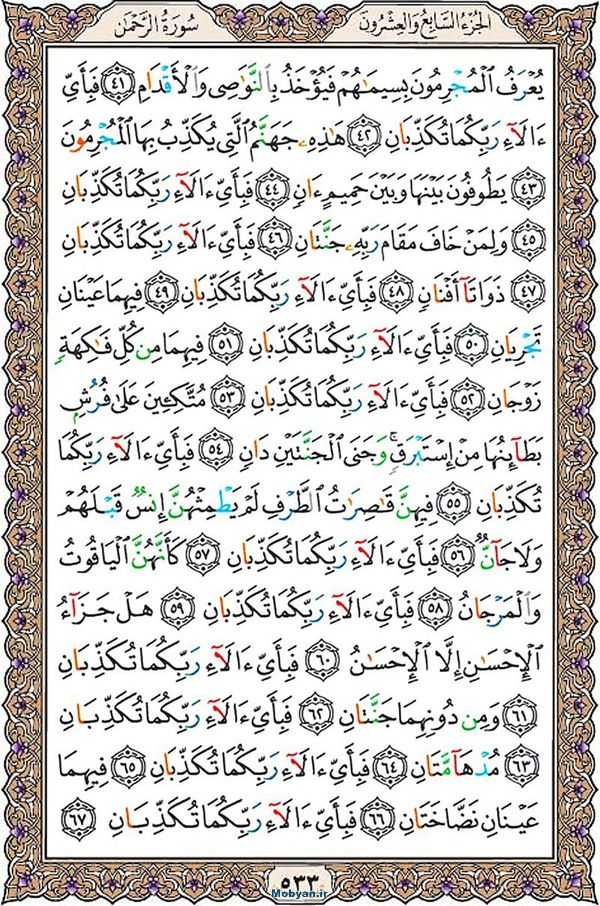 الجزء السابع والعشرون
سورة الرحمن
يُعْرَفُ الْمُجْرِمُونَ بِسِيمَاهُمْ فَيُؤْخَذُ بِالنَّوَاصِي وَالْأَقْدَامِ ﴿٤١﴾ فَبِأَيِّ
ءَالَاءِ رَبِّكُمَا تُكَذِّبَانِ ﴿٤٢﴾ هَٰذِهِ جَهَنَّمُ الَّتِي يُكَذِّبُ بِهَا الْمُجْرِمُونَ
﴿٤٣﴾ يَطُوفُونَ بَيْنَهَا وَبَيْنَ حَمِيمٍ ءَانٍ ﴿٤٤﴾ فَبِأَيِّ ءَالَاءِ رَبِّكُمَا تُكَذِّبَانِ
﴿٤٥﴾ وَلِمَنْ خَافَ مَقَامَ رَبِّهِ جَنَّتَانِ ﴿٤٦﴾ فَبِأَيِّ ءَالَاءِ رَبِّكُمَا تُكَذِّبَانِ
﴿٤٧﴾ ذَوَاتَا أَفْنَانٍ ﴿٤٨﴾ فَبِأَيِّ ءَالَاءِ رَبِّكُمَا تُكَذِّبَانِ ﴿٤٩﴾ فِيهِمَا عَيْنَانِ
تَجْرِيَانِ ﴿٥٠﴾ فَبِأَيِّ ءَالَاءِ رَبِّكُمَا تُكَذِّبَانِ ﴿٥١﴾ فِيهِمَا مِن كُلِّ فَاكِهَةٍ
زَوْجَانِ ﴿٥٢﴾ فَبِأَيِّ ءَالَاءِ رَبِّكُمَا تُكَذِّبَانِ ﴿٥٣﴾ مُتَّكِئِينَ عَلَىٰ فُرُشٍ
بَطَائِنُهَا مِنْ إِسْتَبْرَقٍ ۚ وَجَنَى الْجَنَّتَيْنِ دَانٍ ﴿٥٤﴾ فَبِأَيِّ ءَالَاءِ رَبِّكُمَا
تُكَذِّبَانِ ﴿٥٥﴾ فِيهِنَّ قَاصِرَاتُ الطَّرْفِ لَمْ يَطْمِثْهُنَّ إِنسٌ قَبْلَهُمْ
وَلَا جَانٌّ ﴿٥٦﴾ فَبِأَيِّ ءَالَاءِ رَبِّكُمَا تُكَذِّبَانِ ﴿٥٧﴾ كَأَنَّهُنَّ الْيَاقُوتُ
وَالْمَرْجَانُ ﴿٥٨﴾ فَبِأَيِّ ءَالَاءِ رَبِّكُمَا تُكَذِّبَانِ ﴿٥٩﴾ هَلْ جَزَاءُ
الْإِحْسَانِ إِلَّا الْإِحْسَانُ ﴿٦٠﴾ فَبِأَيِّ ءَالَاءِ رَبِّكُمَا تُكَذِّبَانِ
﴿٦١﴾ وَمِن دُونِهِمَا جَنَّتَانِ ﴿٦٢﴾ فَبِأَيِّ ءَالَاءِ رَبِّكُمَا تُكَذِّبَانِ
﴿٦٣﴾ مُدْهَامَّتَانِ ﴿٦٤﴾ فَبِأَيِّ ءَالَاءِ رَبِّكُمَا تُكَذِّبَانِ ﴿٦٥﴾ فِيهِمَا
عَيْنَانِ نَضَّاخَتَانِ ﴿٦٦﴾ فَبِأَيِّ ءَالَاءِ رَبِّكُمَا تُكَذِّبَانِ ﴿٦٧﴾
٥٣٣
Mobyan.ir